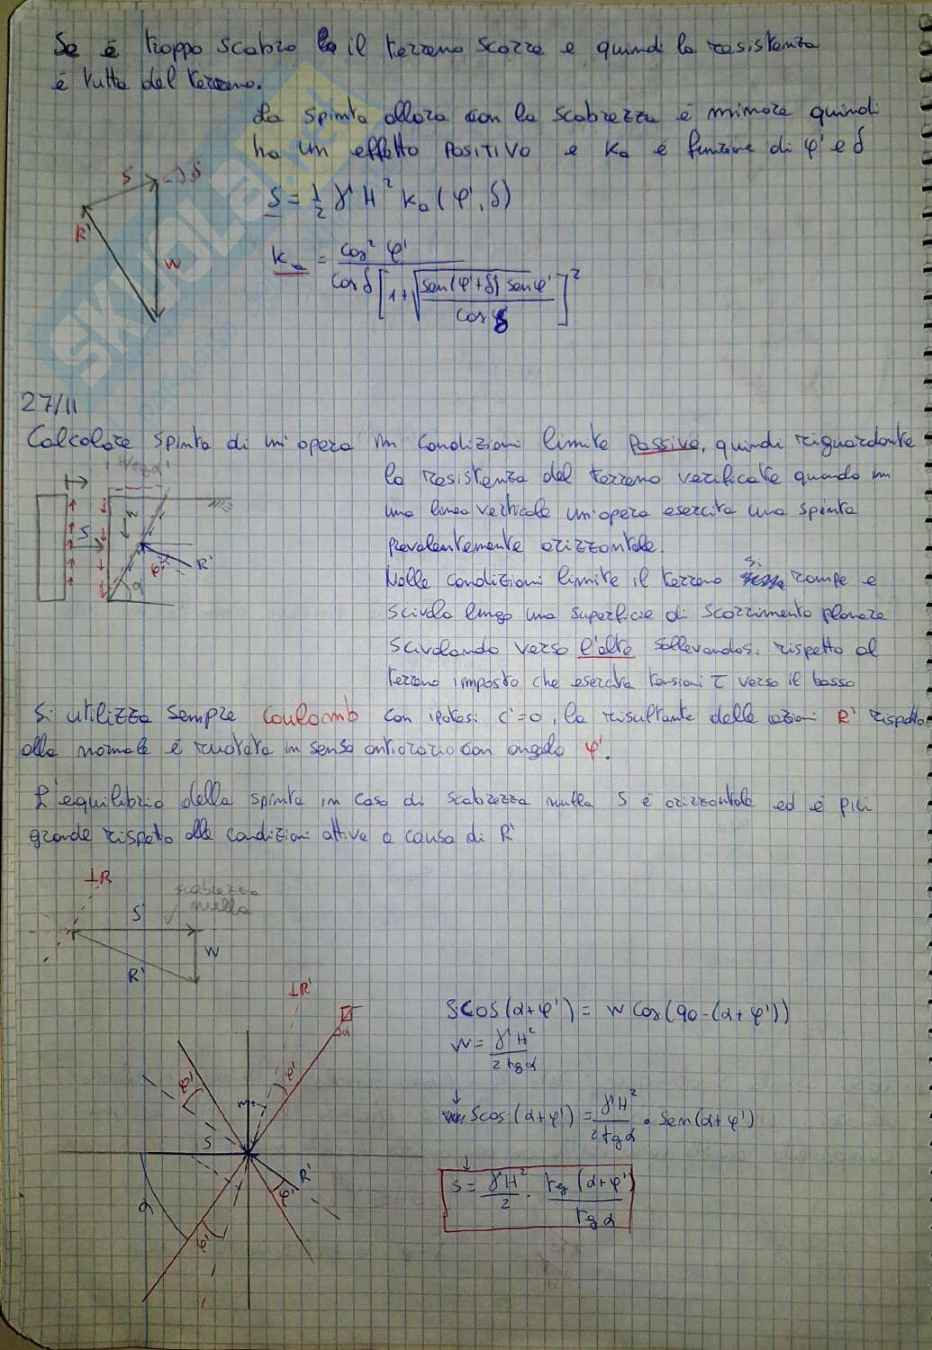 Se è troppo scabro il terreno scorre e quindi la resistenza
è tutta del terreno.
La spinta allora con la scabrezza è minore quindi
ha un effetto POSITIVO e Ka è funzione di φ' e δ
S δ
S = 1/2 γ' H² ka (φ', δ)
R'
W
ka = cos² φ' / cos δ [1+√(sen(φ'+δ) sen φ' / cos δ)]²
27/11
Calcolare spinta di un'opera in condizioni limite passive, quindi riguardante
la resistenza del terreno verificate quando in
una linea verticale un'opera esercita una spinta
prevalentemente orizzontale.
S W R' φ' α
Nelle condizioni limite il terreno si rompe e
scivola lungo una superficie di scorrimento planare
scivolando verso l'alto sollevandosi, rispetto al
terreno imposto che esercita tensioni τ verso il basso
Si utilizza sempre Coulomb con ipotesi c'=0, la risultante delle azioni R' rispetto
alla normale è ruotata in senso antiorario con angolo φ'.
L'equilibrio della spinta in caso di scabrezza nulla S è orizzontale ed è più
grande rispetto alle condizioni attive a causa di R'
⊥R
scabrezza
nulla
S
W
R'
⊥R'
S cos(α+φ') = W cos(90-(α+φ'))
W = γ'H² / 2 tg α
φ' φ'
S cos(α+φ') = γ'H² / 2 tg α · sen(α+φ')
S R'
φ'
S = γ'H² / 2 · tg (α+φ') / tg α
α
φ'